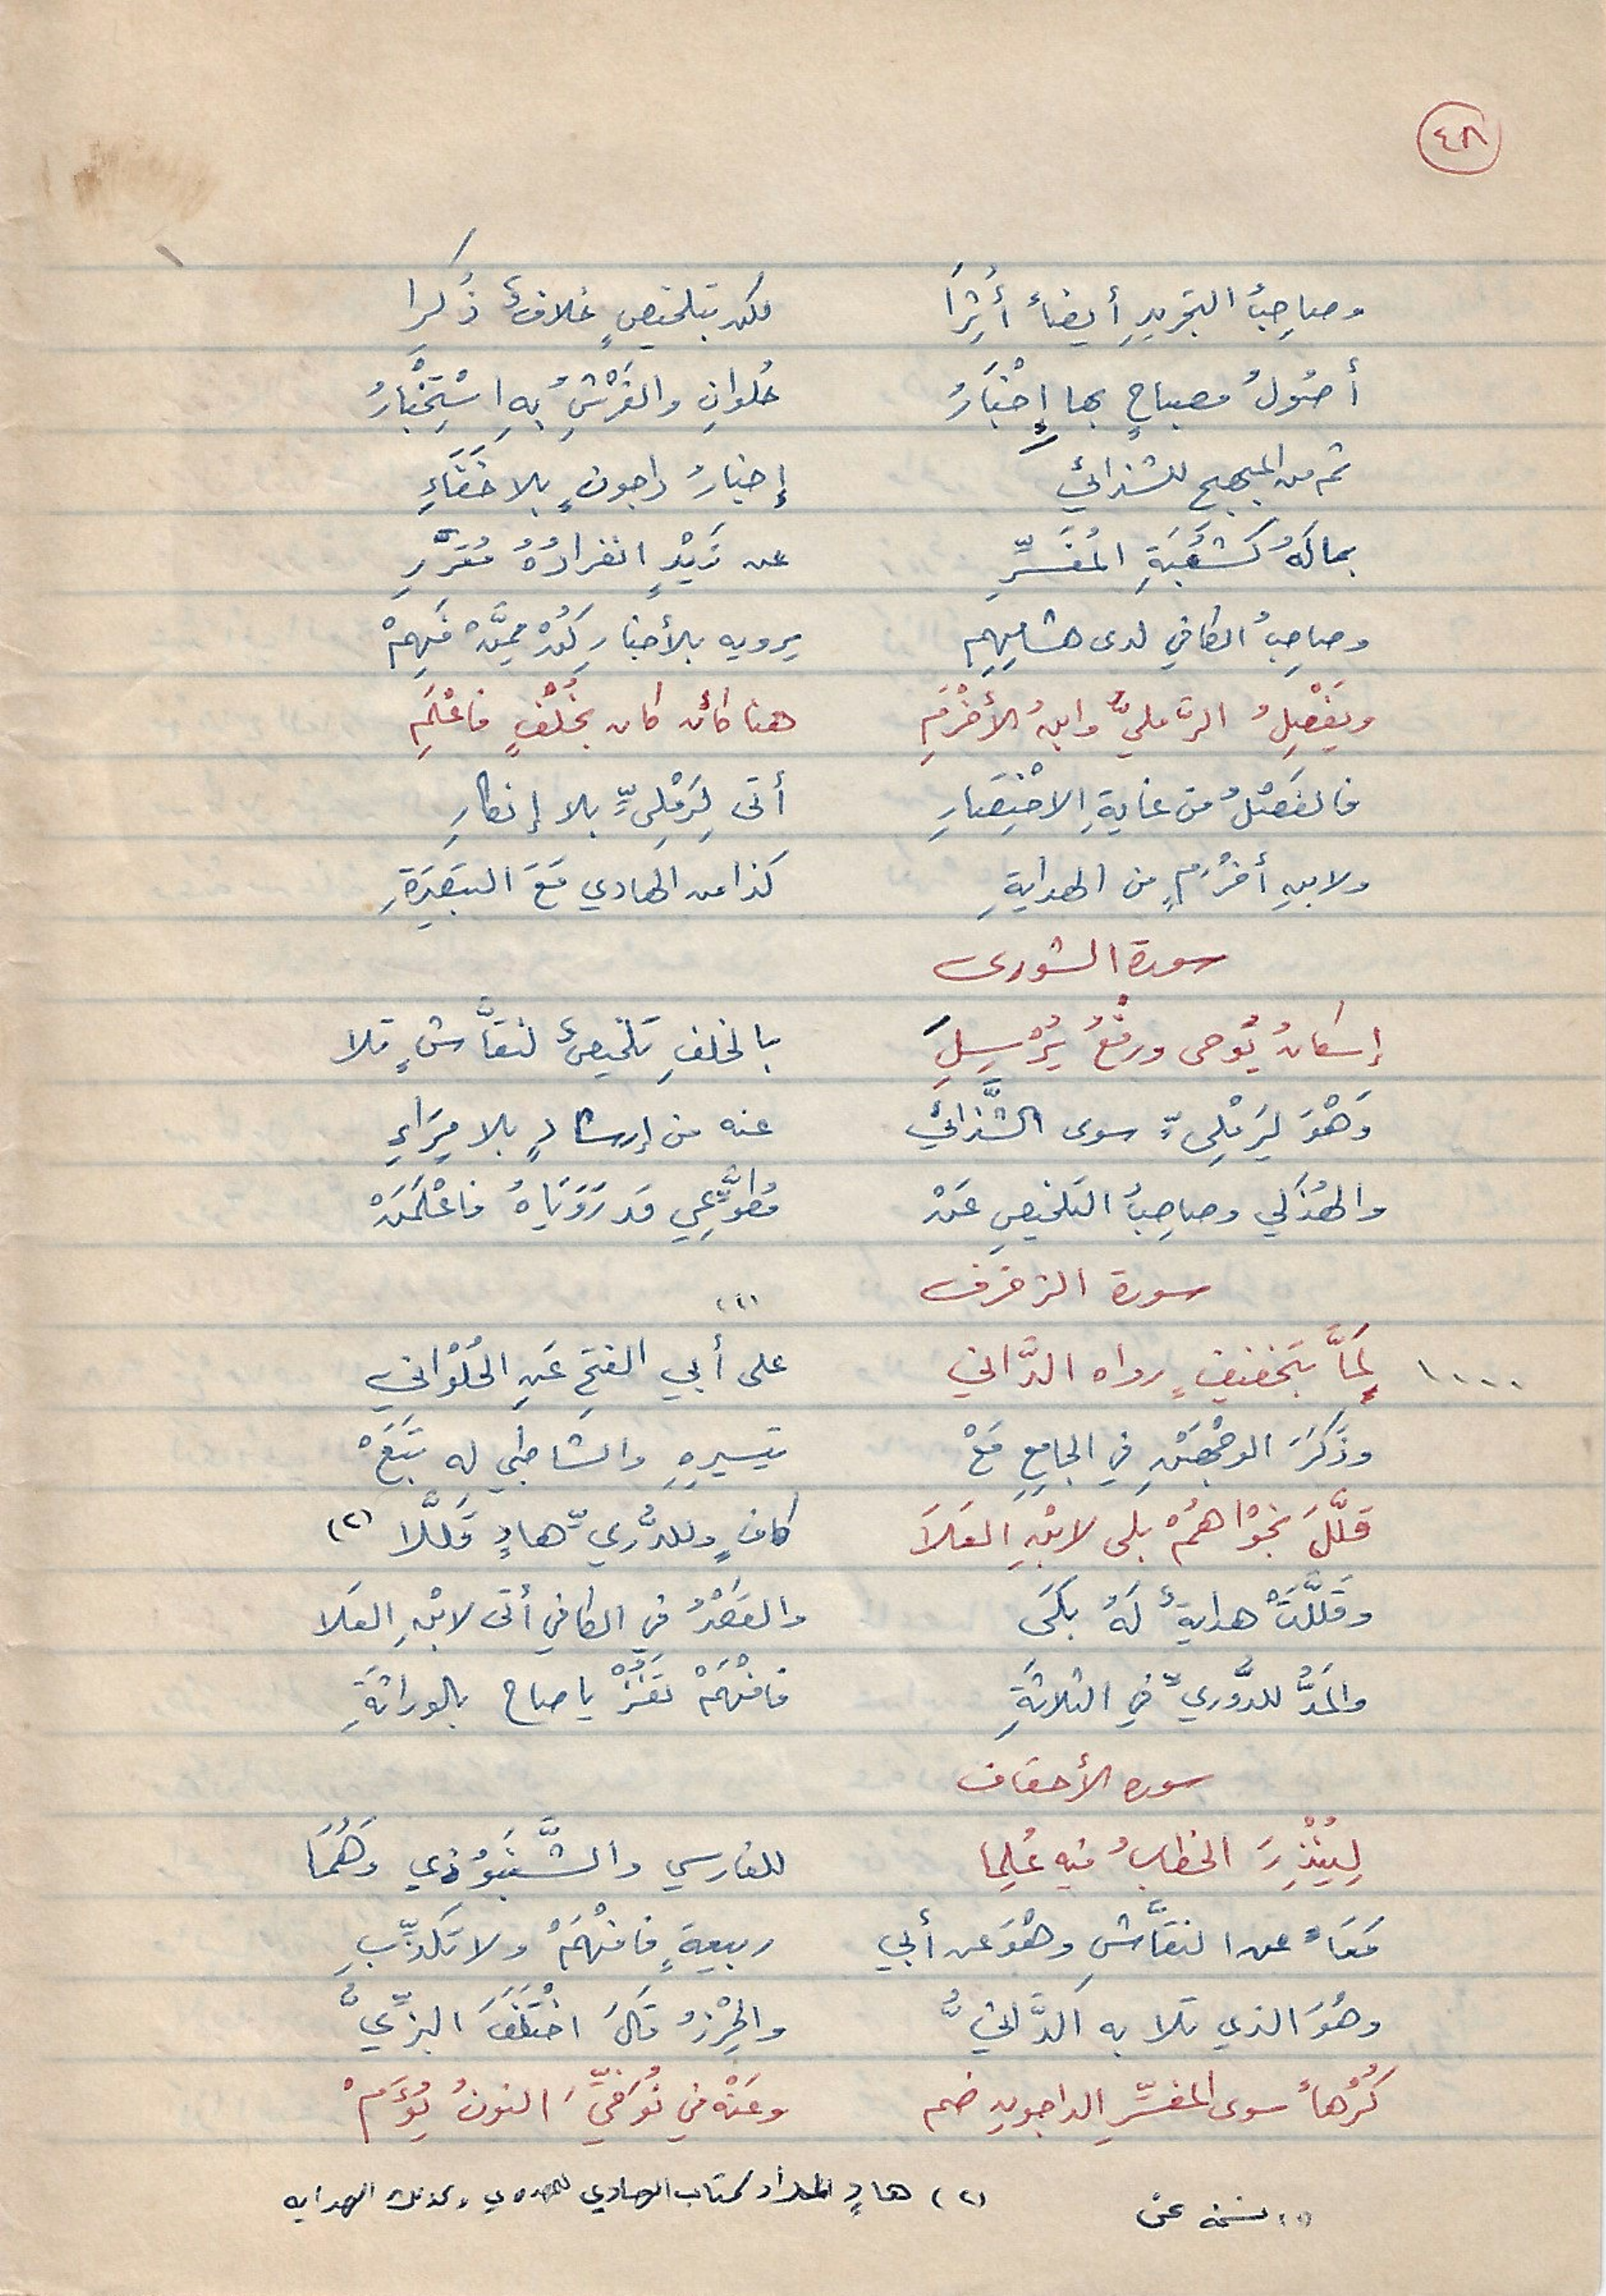 ٤٨
وصاحِبُ التجريدِ أيضاً أُثِرَا لكن بتلخيصٍ خلافٌ ذُكِرا
أصُولُ مصباحٍ بها إِخْبَارُ حُلوانِ والفَرْشِ بِهِ اسْتِخْبَارُ
ثم من المبهج للشذائي إخبارُ داجونٍ بلا خَفَاءِ
بما لَهُ كَشُعْبَةِ المُفَسِّرِ عن زَيْدٍ انفرادُهُ مُقَرَّرِ
وصاحِبُ الكافي لدى هشامِهِم يرويه بالأخبار كُنْ ممَّنْ فَهِمْ
ويَفْصِلُ الرَّمليُّ وابنُ الأخْرَمِ هنا كأن كان بخُلْفٍ فاعْلَمِ
فالفَصْلُ من غايةِ الاخْتِصَارِ أتى لِرَمْلِيٍّ بلا إنكارِ
ولابنِ أخْرَمٍ من الهدايةِ كذا من الهادي مَعَ التبصِرَةِ
سورة الشورى
إسكانُ يُوحى ورفْعُ يُرْسِلَ بالخلفِ تلخيصٌ لنقَّاشٍ تلا
وَهْوَ لِرَمْلِيٍّ سوى الشَّذائي عنه من إرشادٍ بلا مِرَاءِ
والهُذَلي وصاحِبُ التلخيصِ عَنْ مُطَّوِّعِي قد رَوَيَاهُ فاعْلَمَنْ
سورة الزخرف
١٠٠٠ لَمَّا بتَخفيفٍ رواه الدَّاني على أبي الفتحِ عَنِ الحُلْوَاني (١)
وذَكَرَ الوجْهَيْنِ في الجامِعِ مَعْ تيسيرِهِ والشاطبي له تَبَعْ
قلَّلَ نجواهُمْ بلى لابْنِ العَلَا كافٍ وللدُّوريِّ هادٍ قَلَّلا (٢)
وقلَّلَتْ هدايةٌ لَهُ بلَى والقَصْرُ في الكافي أتى لابْنِ العَلا
والمَدُّ للدُّوريِّ في الثلاثةِ فافْهَمْ تَفُزْ يا صاح بالوراثَةِ
سورة الأحقاف
لِيُنْذِرَ الخطابُ فيه عُلِما للفارسي والشَّنَبُوذي وَهُمَا
مَعَاً عن النقَّاشِ وهْوَ عن أبي ربيعةٍ فافْهَمْ ولا تكذِّبِ
وهُوَ الذي تلا به الدَّانيُّ والحِرْزُ قالَ اخْتَلَفَ البزِّيُّ
كُرْهاً سوى المفسِّرِ الداجوني ضم وعَنْهُ في نُوَفِّيَ النونُ يُؤَمْ
(١) نسخة عن (٢) هادٍ المراد كتاب الهادي وكذلك الهداية